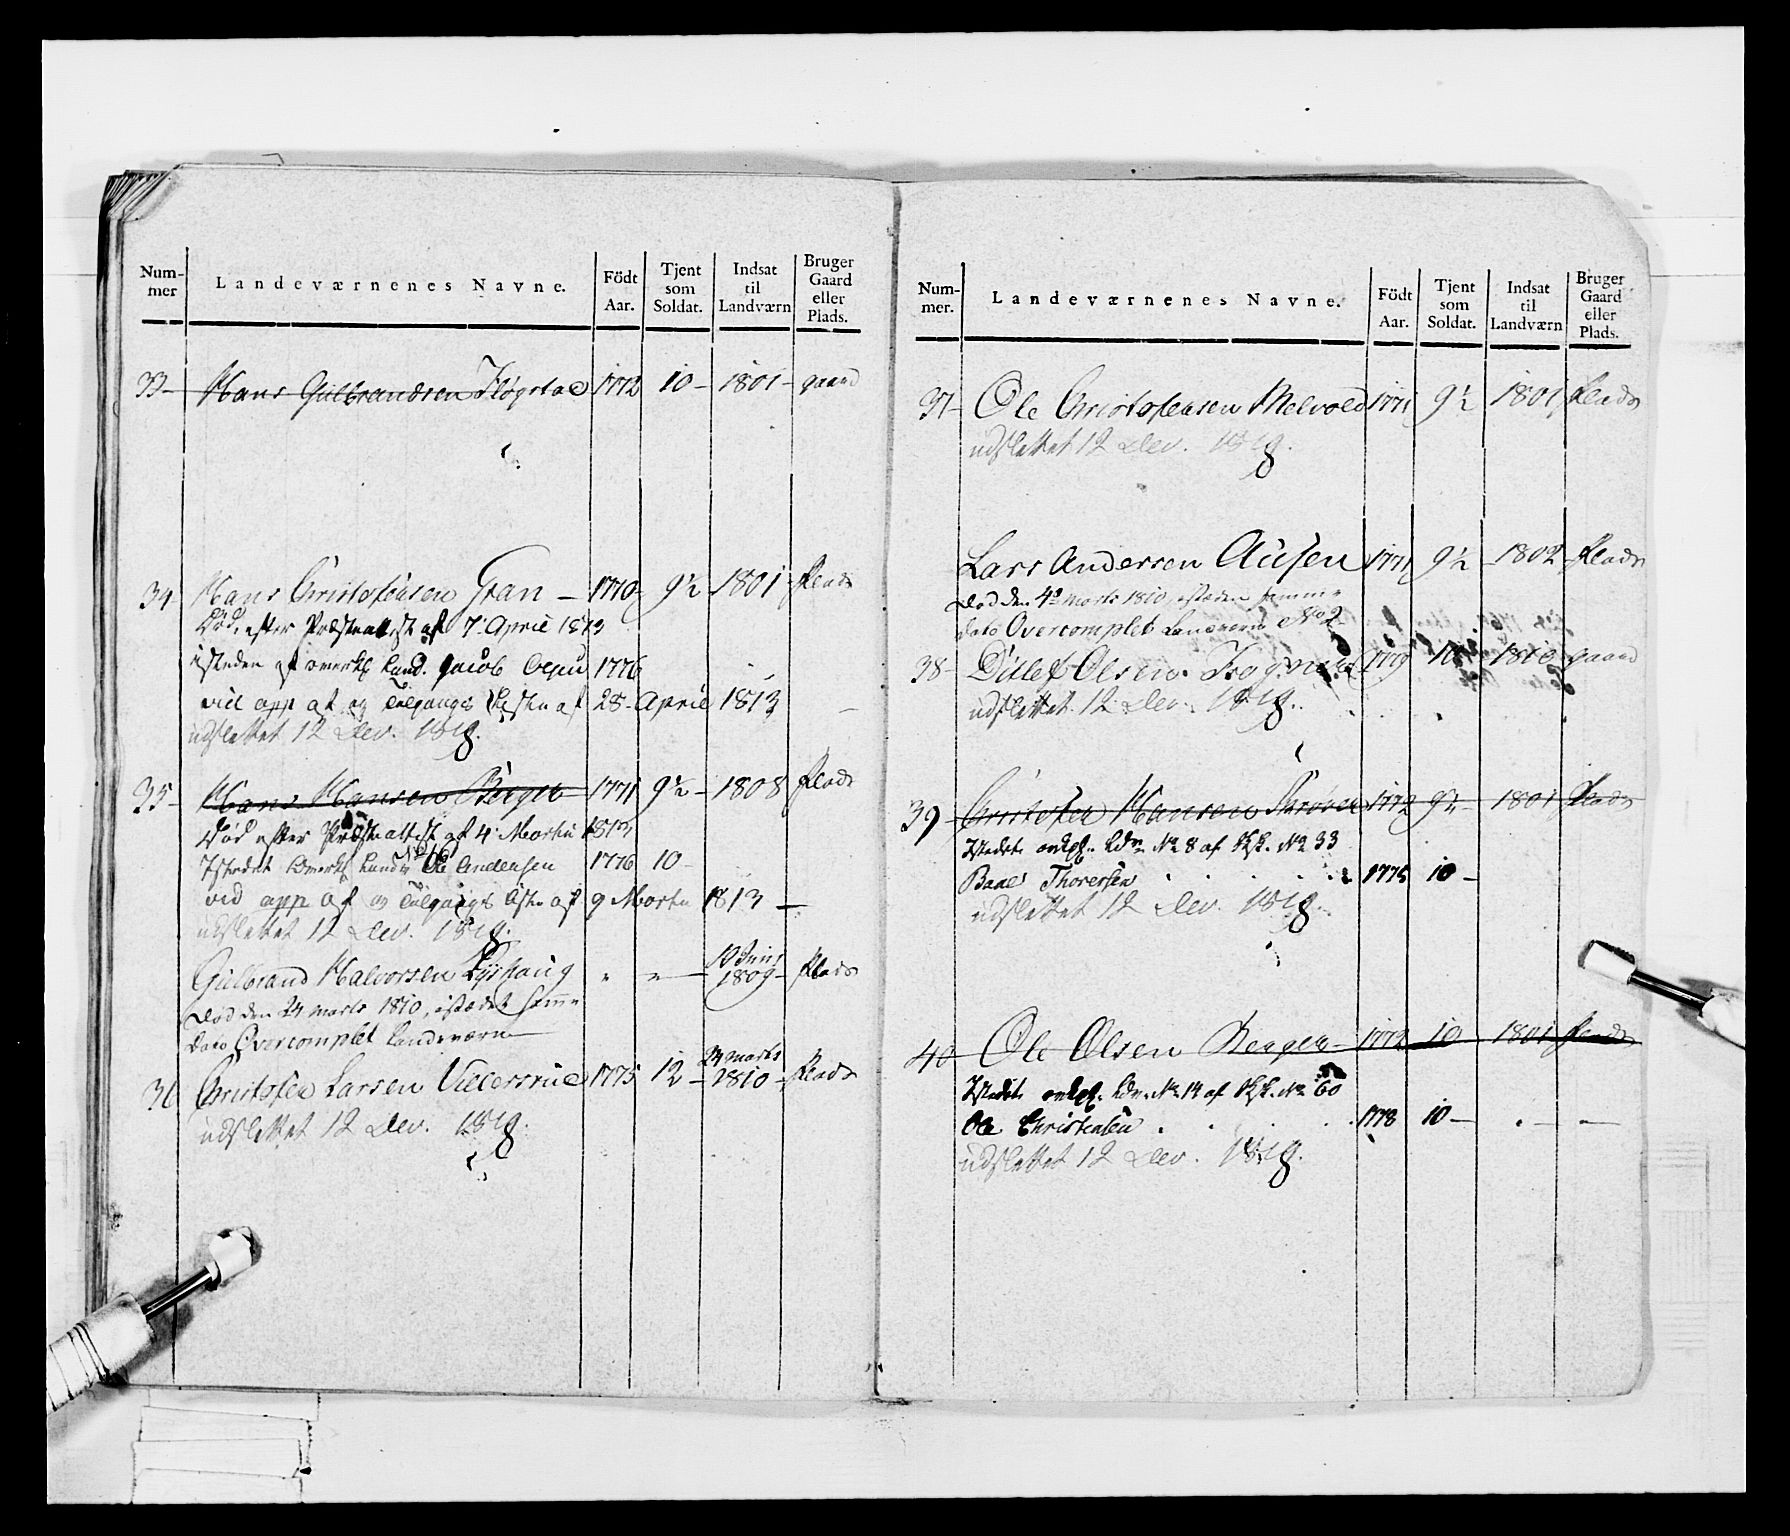 Num- mer
Landeværnenes Navne.
Födt Aar.
Tjent som Soldat.
Indsat til Landværn
Bruger Gaard eller Plads.
33 - Hans Gulbrandsen 1772 10 - 1801 - gaard
34 - Hans Christofersen Gran - 1770 - 9½ 1801 - Plads
Död, efter Præsteattest af 7 April 1813
isteden af Land. Jacob 1776
ved app af og Tilgangs Listen af 28 - April 1813
udslettet 12 Dec. 1818.
35 - Hans Hansen Berger 1771 9½ - 1808 Plads
Död efter Præsteattest af 4 Martii 1813
Istedet Ole Andersen 1776 10 -
ved app af og Tilgangs Liste af 9 Martii 1813 -
udslettet 12 Dec. 1818.
Gulbrand Halvorsen 10 Junii 1809 - Plads
död den 24 marts 1810, istædet samme
dato Overcomplet Landeværn
36 Christofer Larsen Villersrud 1775 12 - 24 marts 1810 - Plads
udslettet 12 Dec. 1818.
Num- mer.
Landeværnenes Navne.
Födt Aar.
Tjent som Soldat.
Indsat til Landværn
Bruger Gaard eller Plads.
37 - Ole Christofersen Melvold 1771 9½ 1801 Plads
udslettet 12 Dec. 1818.
Lars Andersen 1771 9½ - 1802 - Plads
död den 4de marts 1810, istæden samme
dato Overcomplet Landeværn No 2
38 - Ditlef Olsen 10 1810 gaard
udslettet 12 Dec. 1818.
39 - Christofer Hansen 1772 9½ - 1801 Plads
Istedet No 8 af No 33
Thoresen 1775 10 -
udslettet 12 Dec. 1818.
40 - Ole Olsen Berger 1772 10 1801 Plads
Istedet No 14 af No 60
Ole Christensen 1778 10 -
udslettet 12 Dec. 1818.